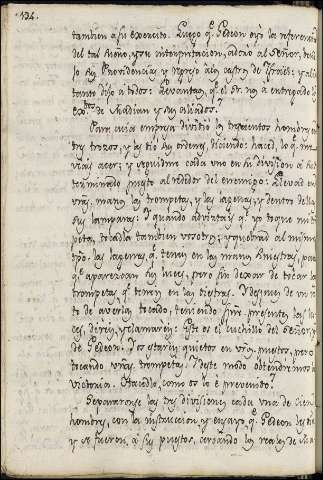 134.
tambien à su exercito. Luego q.e Gedeon oyò la referencia
del tal sueño, y su interpretacion, adorò al Señor, 
su Providencia, y regresò à los castros de Israel: y al
tanto dijo à todos: Levantaos, q.e el Sr. nos a entregado los
ex.tos de Madian y sus aliados.
Para cuia empresa dividiò los trescientos hombres en
tres trozos, y les diò sus ordenes, diciendo: haced, lo q.e me
viereis acer; y seguidme cada uno en su division al
terminado puesto al rededor del enemigo: Llevad en
vras. manos las trompetas, y las lagenas, y dentro de ellas
sus lamparas: I quando advirtais q.e yo toque mi trom
peta, tocadla tambien vosotros; y quebrad al mismo
tpo. las lagenas q.e teneis en las manos siniestras, para
q.e aparezcan sus luces, pero sin dexar de tocar las
trompetas q.e teneis en las diestras. I despues de un ra
to de averlas tocado, teniendo siempre presentes las lu
ces, direis, y clamareis: Este es el cuchillo del Señor, y
de Gedeon. I os estareis quietos en vros. puestos, pero
tocando vras. trompetas. I deste modo obtendremos la
victoria. Hacedlo, como os lo è prevenido.
Separaronse las tres divisiones cada una de cien
hombres, con la instruccion y ensayo q.e Gedeon les dio
y se fueron, à sus puestos, cercando los reales de